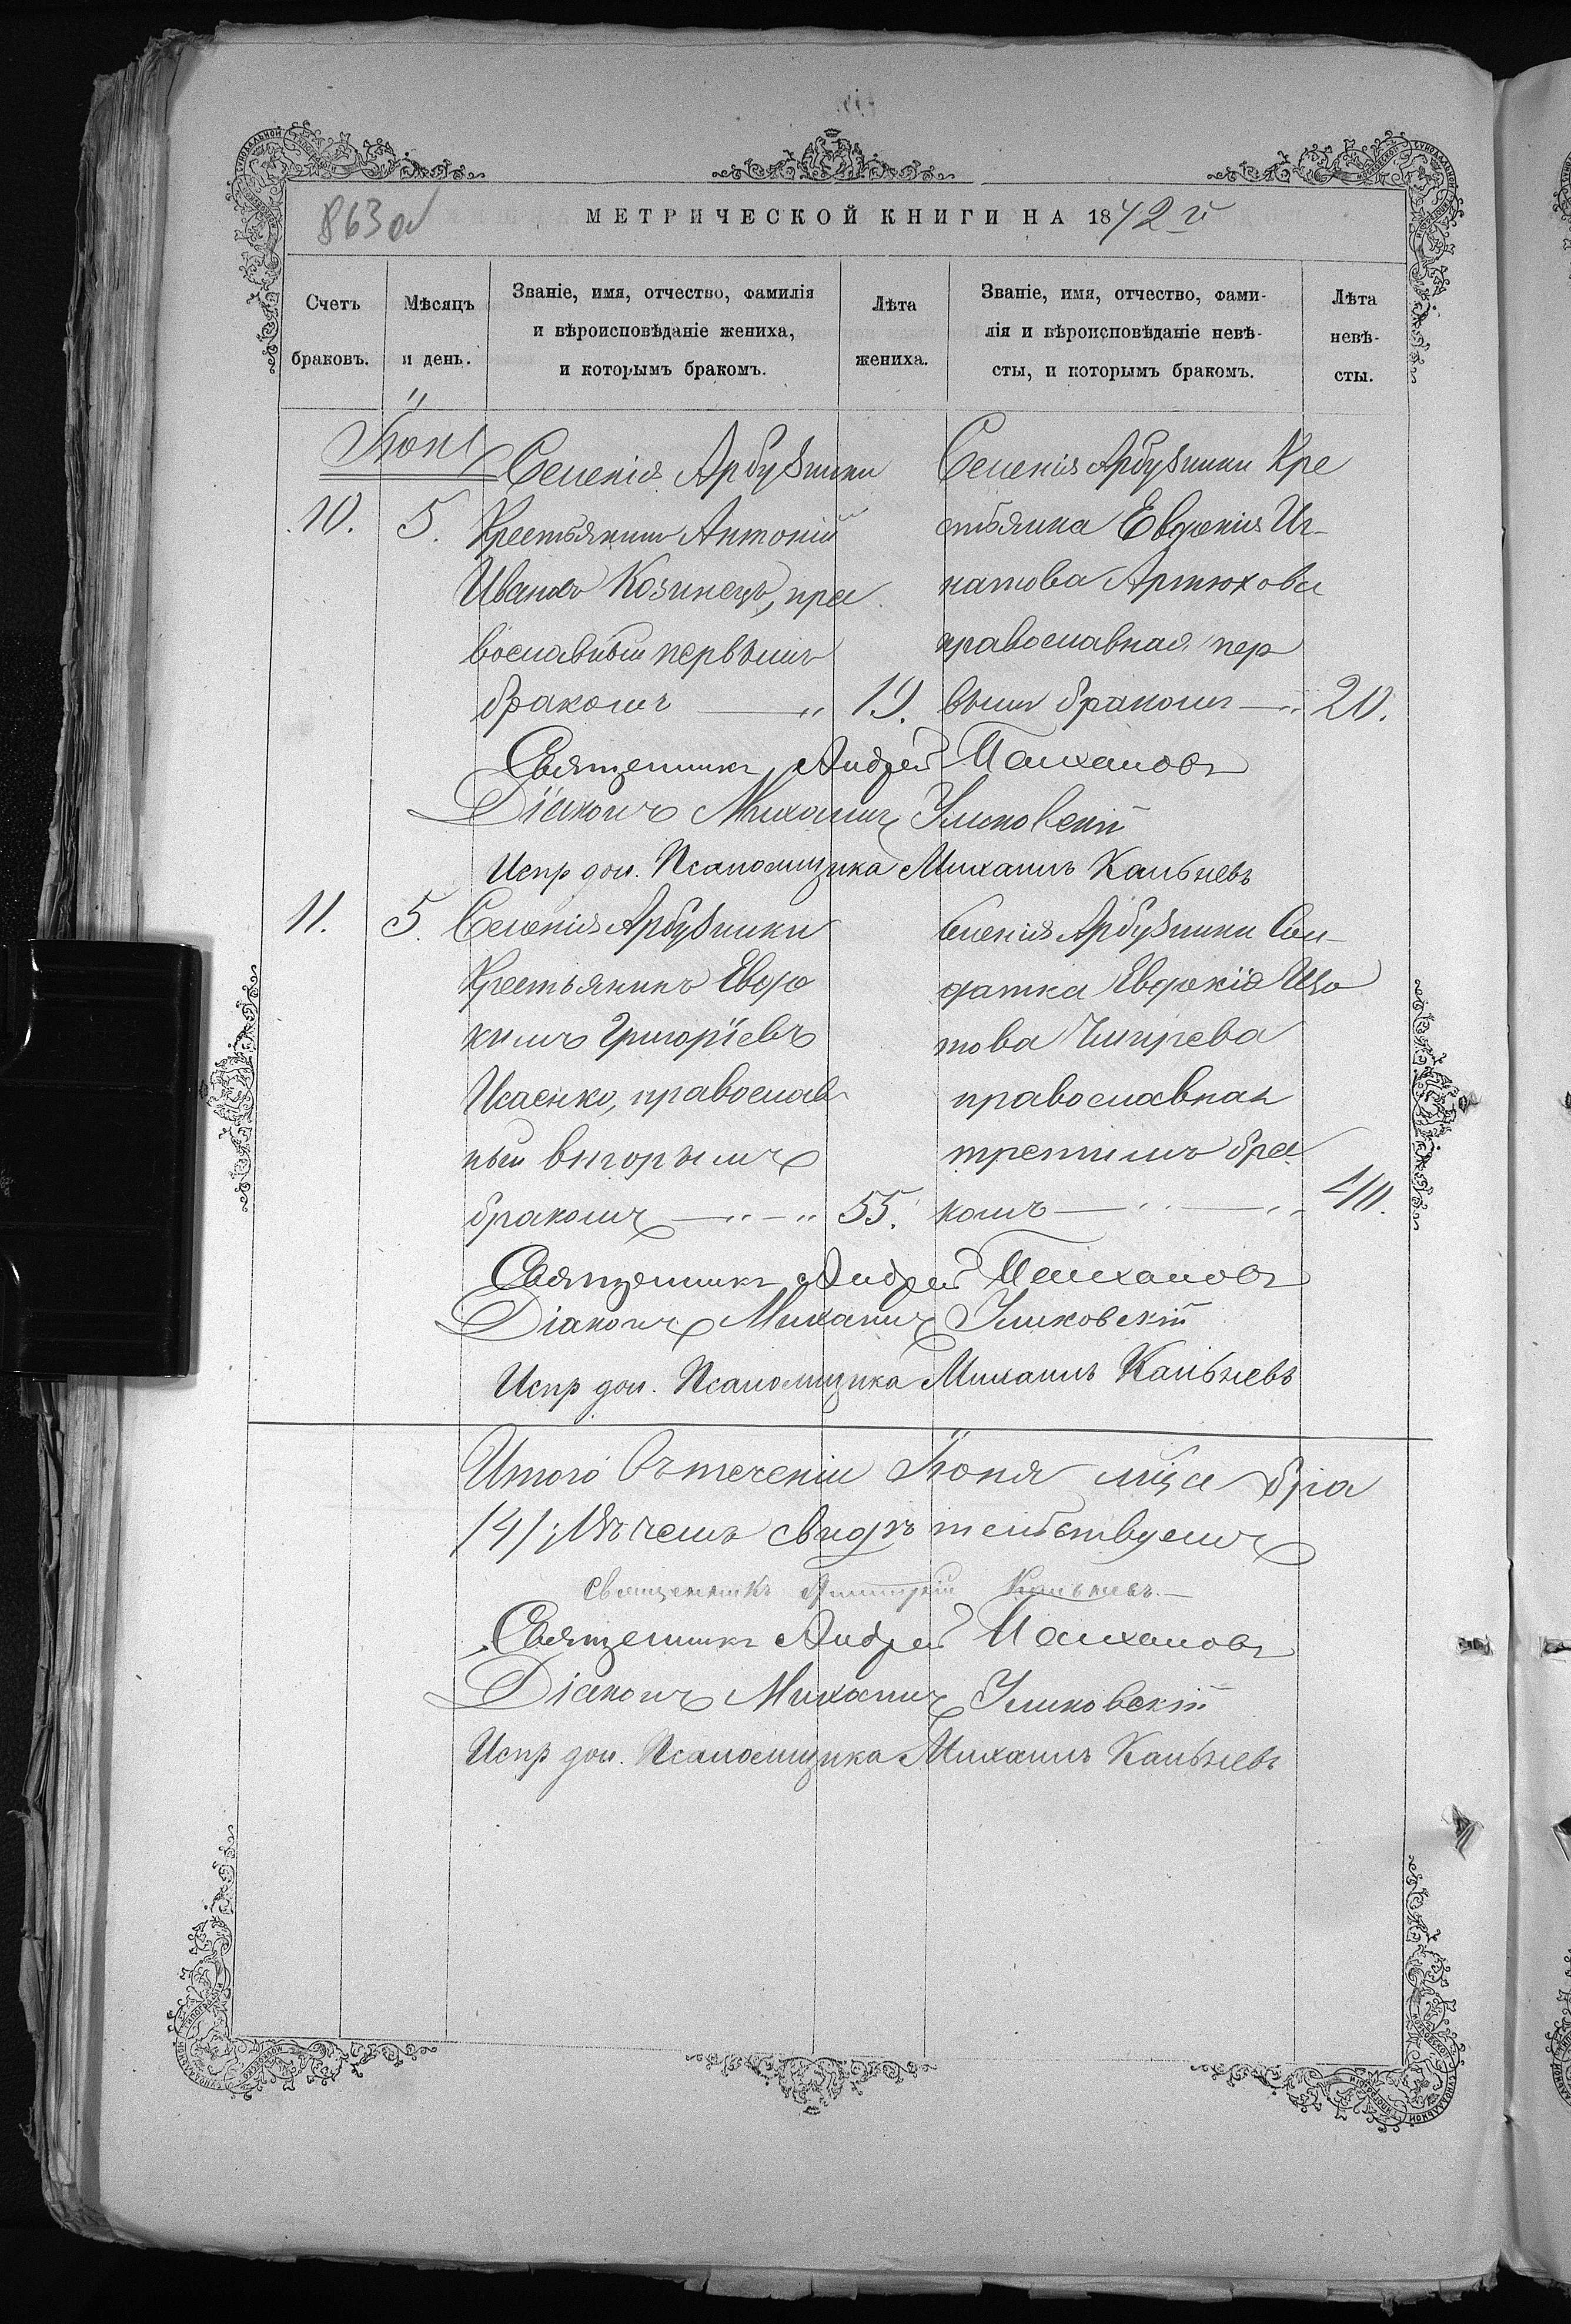 863 об
МЕТРИЧЕСКОЙ КНИГИ НА 1872 й
Счетъ браковъ.
Мѣсяцъ и день.
Званіе, имя, отчество, фамилія
и вѣроисповѣданіе жениха,
и которымъ бракомъ.
Лѣта жениха.
Званіе, имя, отчество, фами-
лія и вѣроисповѣданіе невѣ-
сты, и которымъ бракомъ.
Лѣта невѣ-
сты.
Іюнь
10. 5.
Селенія Арбузинки
Крестьянинъ Антоній
Ивановъ Козинецъ, пра
вославный первымъ
бракомъ — „ 19.
Селенія Арбузинки Кре
стьянка Евфенія Иг-
натова Артюхова
православная, пер
вымъ бракомъ — „ 20.
Священникъ Андрей Палхановъ
Діаконъ Михаилъ Уликовскій
Испр дол. Псаломщика Михаилъ Кальневъ
11. 5.
Селенія Арбузинки
Крестьянинъ Евдо
кимъ Григоріевъ
Исаенко, православ
ный вторымъ
бракомъ — „ — „ 55.
Селенія Арбузинки Сол-
датка Евдокія
това Чигирева
православная
третимъ бра
комъ — „ — „ 40.
Священникъ Андрей Палхановъ
Діаконъ Михаилъ Уликовскій
Испр дол. Псаломщика Михаилъ Кальневъ
Итого въ теченіи Іюня мѣца бра
/4/; въ чемъ свидѣтельствуемъ
Священникъ Димитрій Кальневъ. —
Священникъ Андрей Палхановъ
Діаконъ Михаилъ Уликовскій
Испр дол. Псаломщика Михаилъ Кальневъ